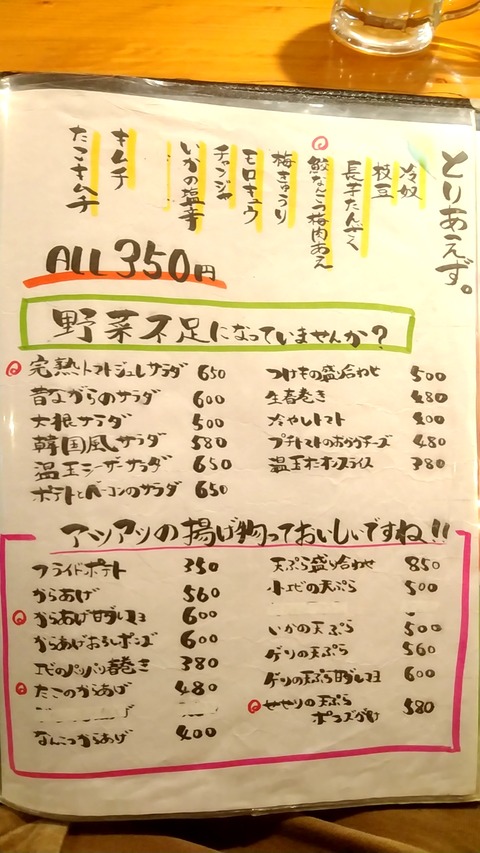 とりあえず。
冷奴
枝豆
長芋たんざく
鮫なんこつ梅肉あえ
梅きゅうり
モロキュウ
チャンジャ
いかの塩辛
キムチ
たこキムチ
ALL 350円
野菜不足になっていませんか?
完熟トマトジュレサラダ 650
昔ながらのサラダ 600
大根サラダ 500
韓国風サラダ 580
温玉シーザーサラダ 650
ポテトとベーコンのサラダ 650
つけもの盛り合わせ 500
生春巻き 480
冷やしトマト 400
プチトマトのおかかチーズ 480
温玉オニオンスライス 380
アツアツの揚げ物っておいしいですね!!
フライドポテト 350
からあげ 560
からあげ甘ダレマヨ 600
からあげおろしポンズ 600
エビのパリパリ春巻き 380
たこのからあげ 480
なんこつからあげ 400
天ぷら盛り合わせ 850
小エビの天ぷら 500
いかの天ぷら 500
ゲソの天ぷら 560
ゲソの天ぷら甘ダレマヨ 600
せせりの天ぷら
ポンズがけ 580